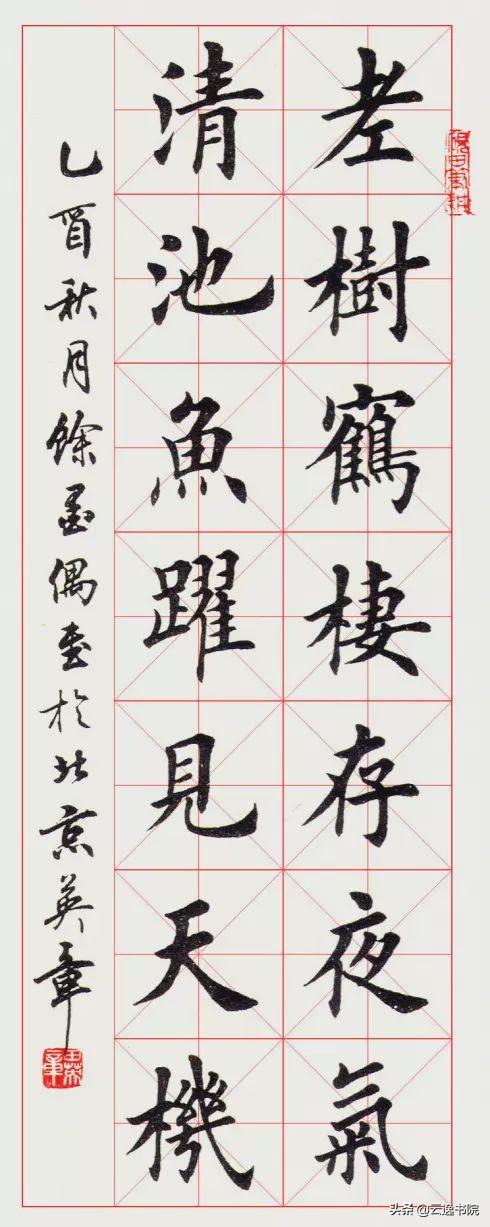 老樹鶴棲存夜氣
清池魚躍見天機
乙酉秋月餘墨偶書於北京英章
田英章
头条@云逸书院